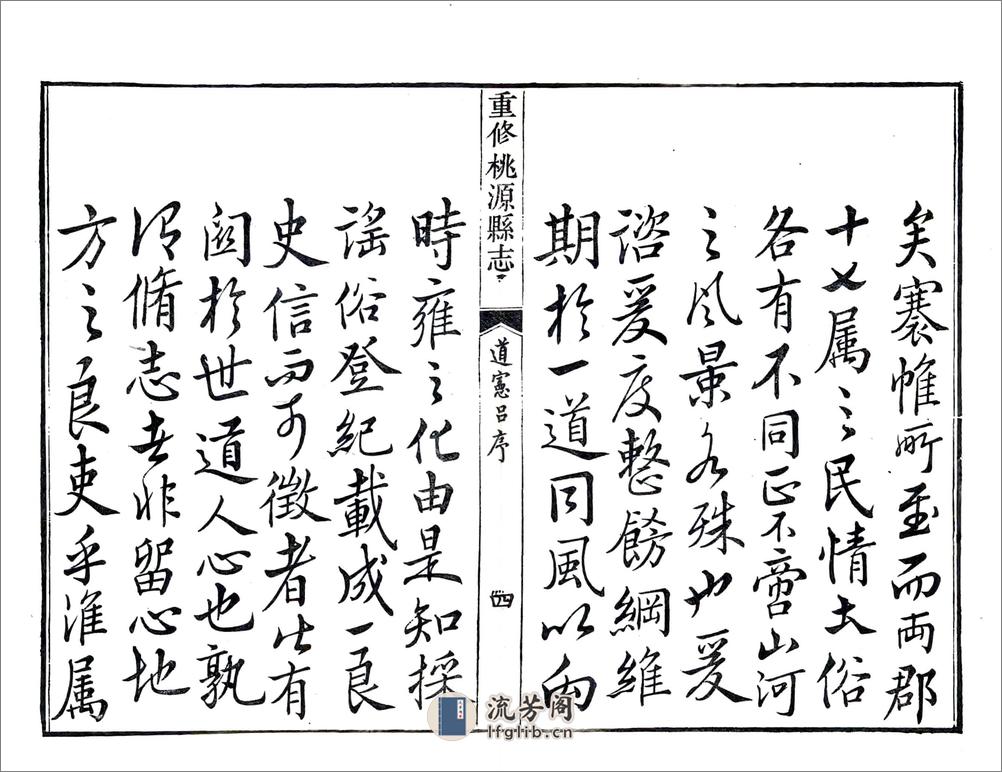 矣褰帷所至而兩郡
十属之民情土俗
各有不同正不啻山河
之风景各殊也爰
諮爰度整飭綱維
期於一道同風以向
重修桃源縣志
道憲呂序
四
時雍之化由是知採
謠俗登紀載成一良
史信而可徵者此有
関於世道人心也孰
謂脩志者非留心地
方之良吏乎淮属
流芳阁
lfglib.cn